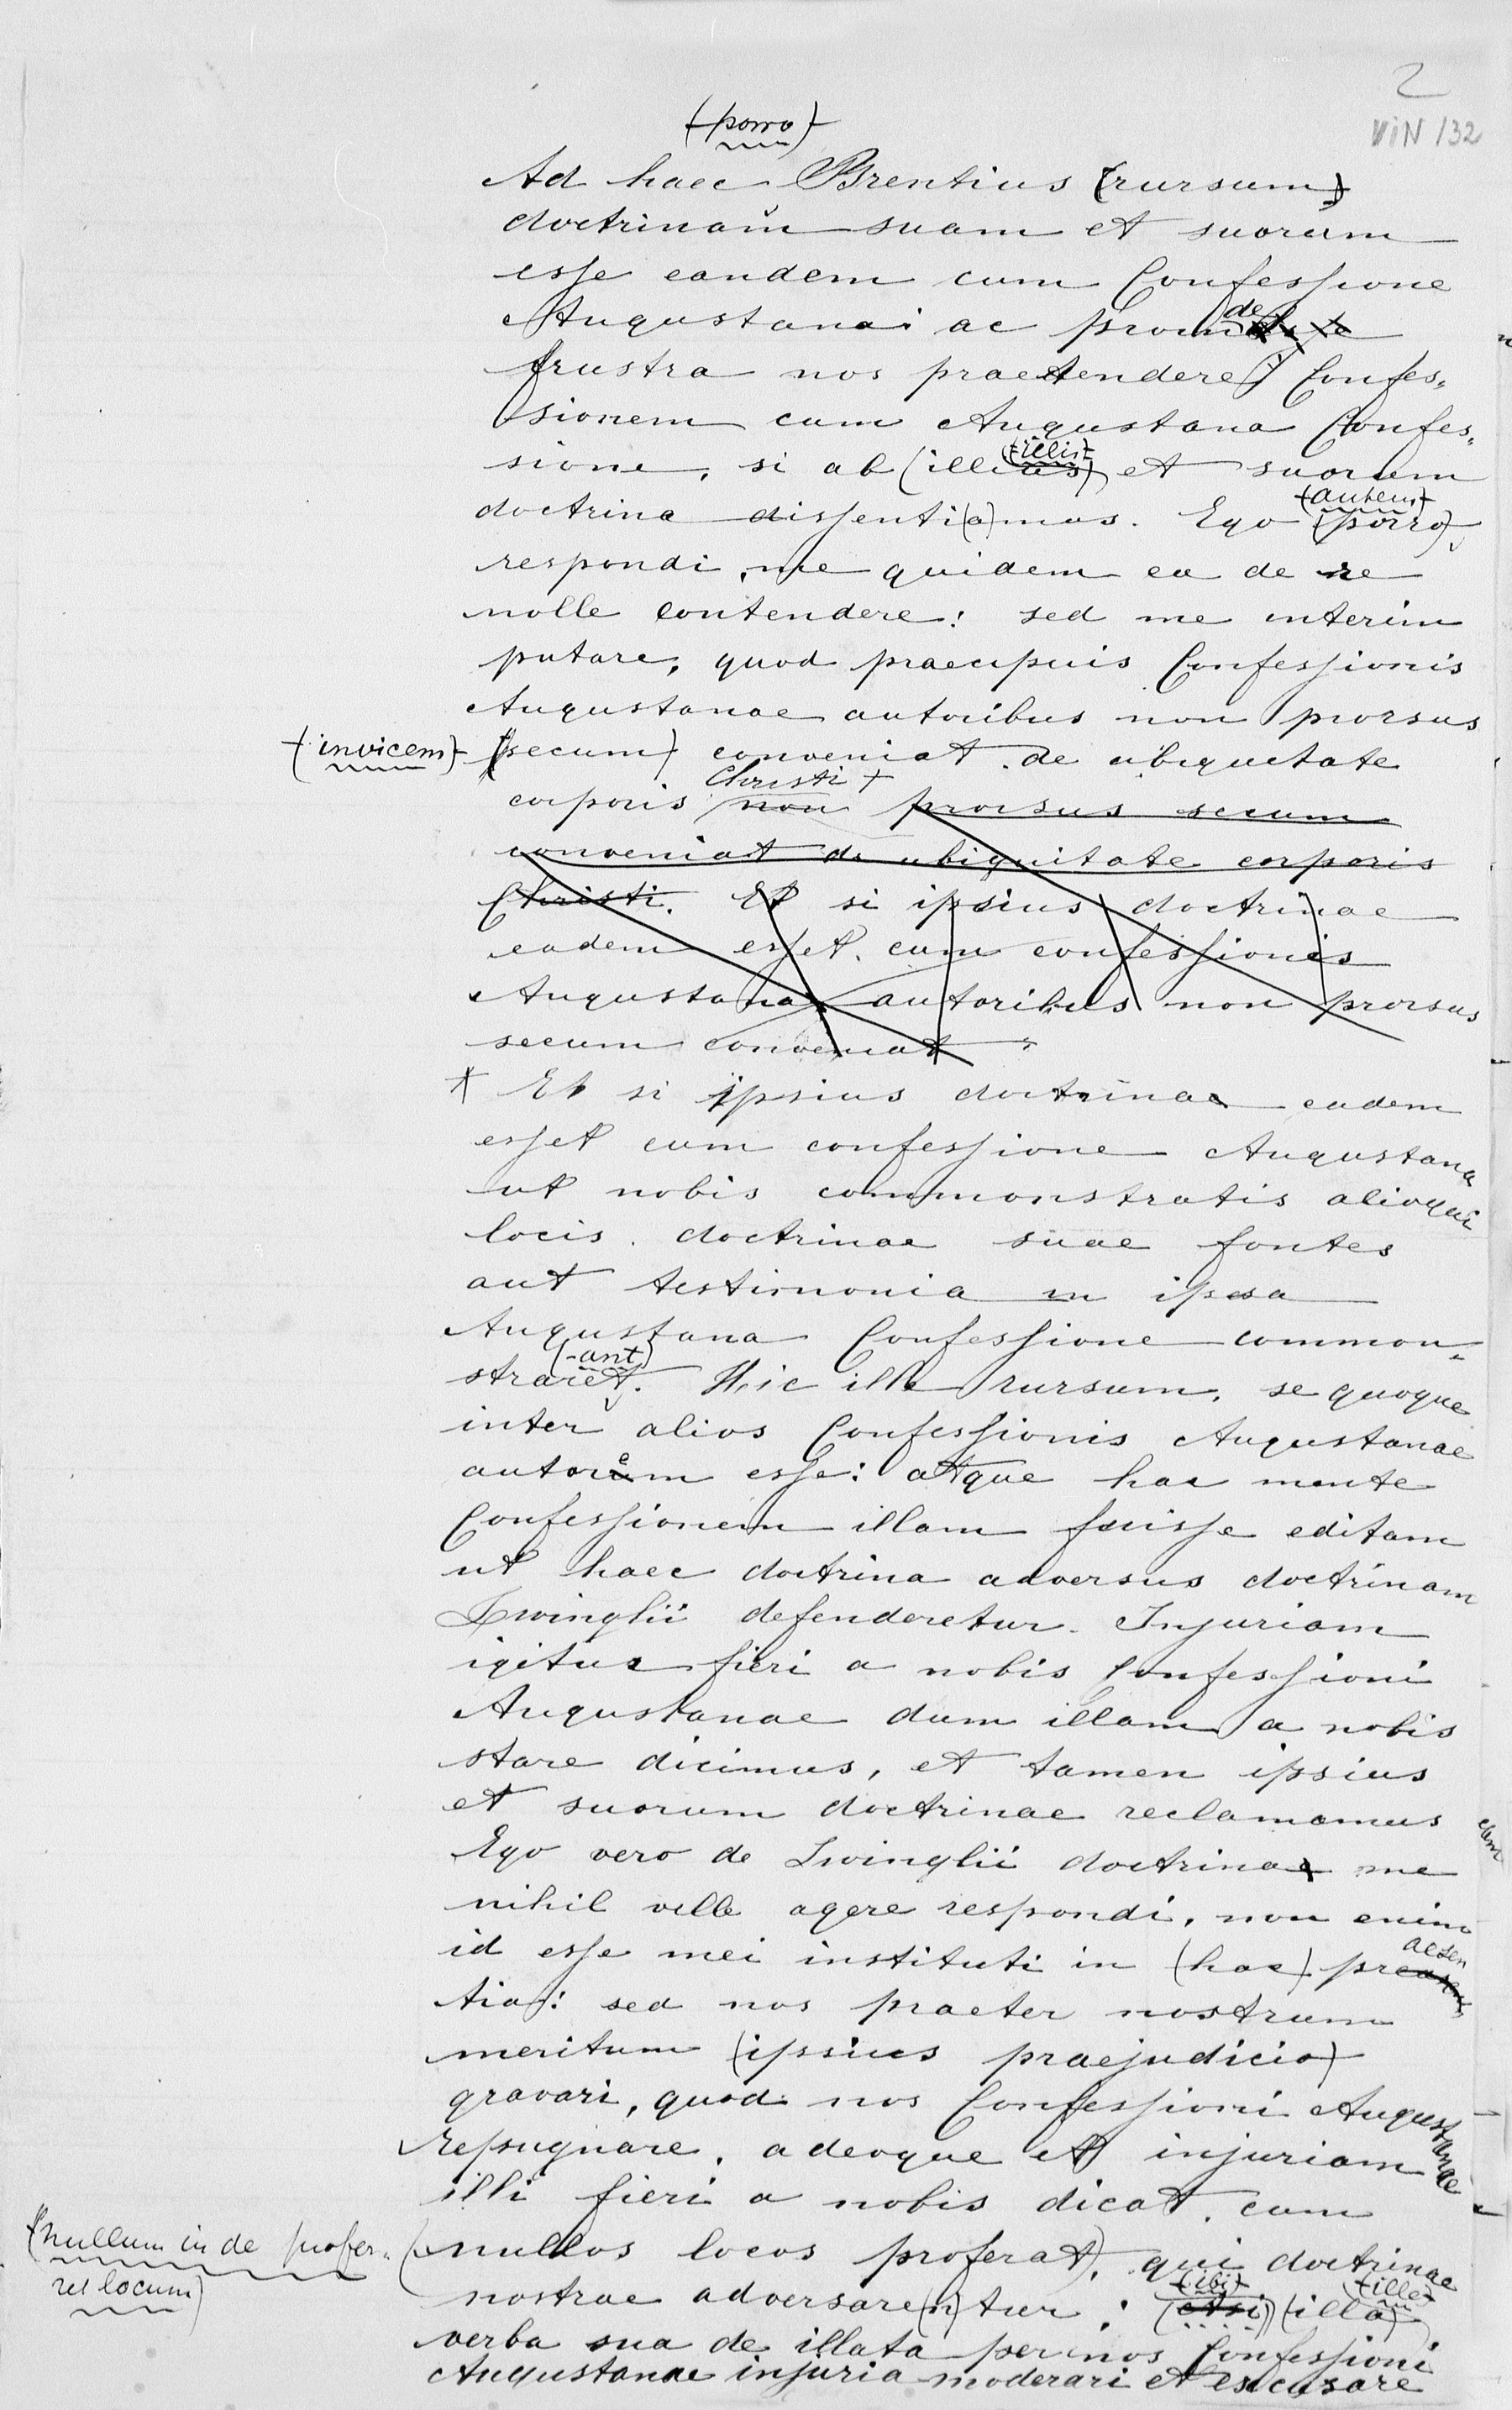 2
VIN /32
(porro)
Ad haec Brentius (rursum)
doctrinam suam et suorum
esse eandem cum Confessione
Augustana: ac proinde
frustra nos praetendere Confes„
sionem cum Augustana Confes„
sione, si ab (illius) (illis) et suorum
doctrina dissenti(a)mus. Ego (porro) (autem)
respondi, me quidem ea de re
nolle contendere: sed me interim
putare, quod praecipuis Confessionis
Augustanae autoribus non prorsus
(invicem) (secum) conveniat de ubiquitate
corporis non Christi + prorsus secum
conveniat de ubiquitate corporis
Christi. Et si ipsius doctrinae
eadem esset cum confessionis
Augustana autoribus non prorsus
secum conveniat
+ Et si ipsius doctrina eadem
esset cum confessione Augustana
ut nobis commonstratis alioqui
locis doctrinae suae fontes
aut testimonia in ipsa
Augustana Confessione common„
straret (-ant). Hic ille rursum, se quoque
inter alios Confessionis Augustanae
autorem esse: atque hac mente
Confessionem illam fuisse editam
ut haec doctrina adversus doctrinam
Zwinglii defenderetur. Injuriam
igitur fieri a nobis Confessioni
Augustanae dum illam a nobis
stare dicimus, et tamen ipsius
et suorum doctrinae reclamamus
Ego vero de Zwinglii doctrina me
nihil velle agere respondi, non enim
id esse mei instituti in (hac) praesen
tia: sed nos praeter nostrum
meritum (ipsius praejudicio)
gravari, quod nos Confessioni Augustanae
repugnare, adeoque et injuriam
illi fieri a nobis dicat, cum
(nullum inde profer„ (nullos locos proferat), qui doctrinae
ret locum) nostrae adversare(n)tur: (etsi) (ibi) (illa) (ille)
verba sua de illata per nos Confessioni
Augustanae injuria moderari et excusare